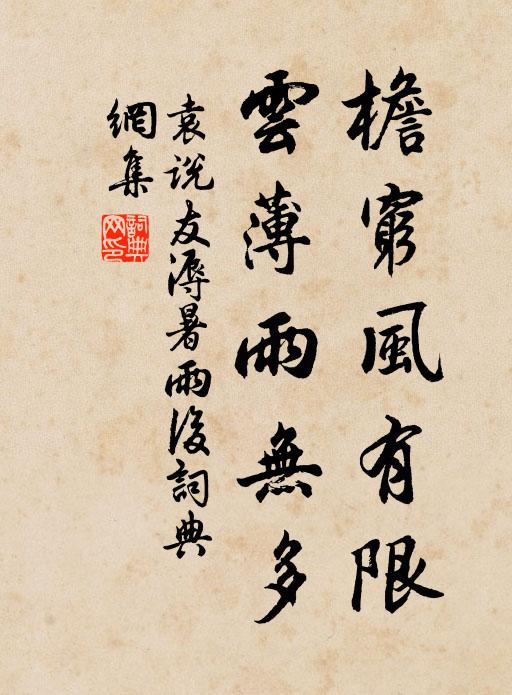 檐窮風有限
雲薄雨無多
袁説友溽暑雨後詞典
網集
詞典
网印